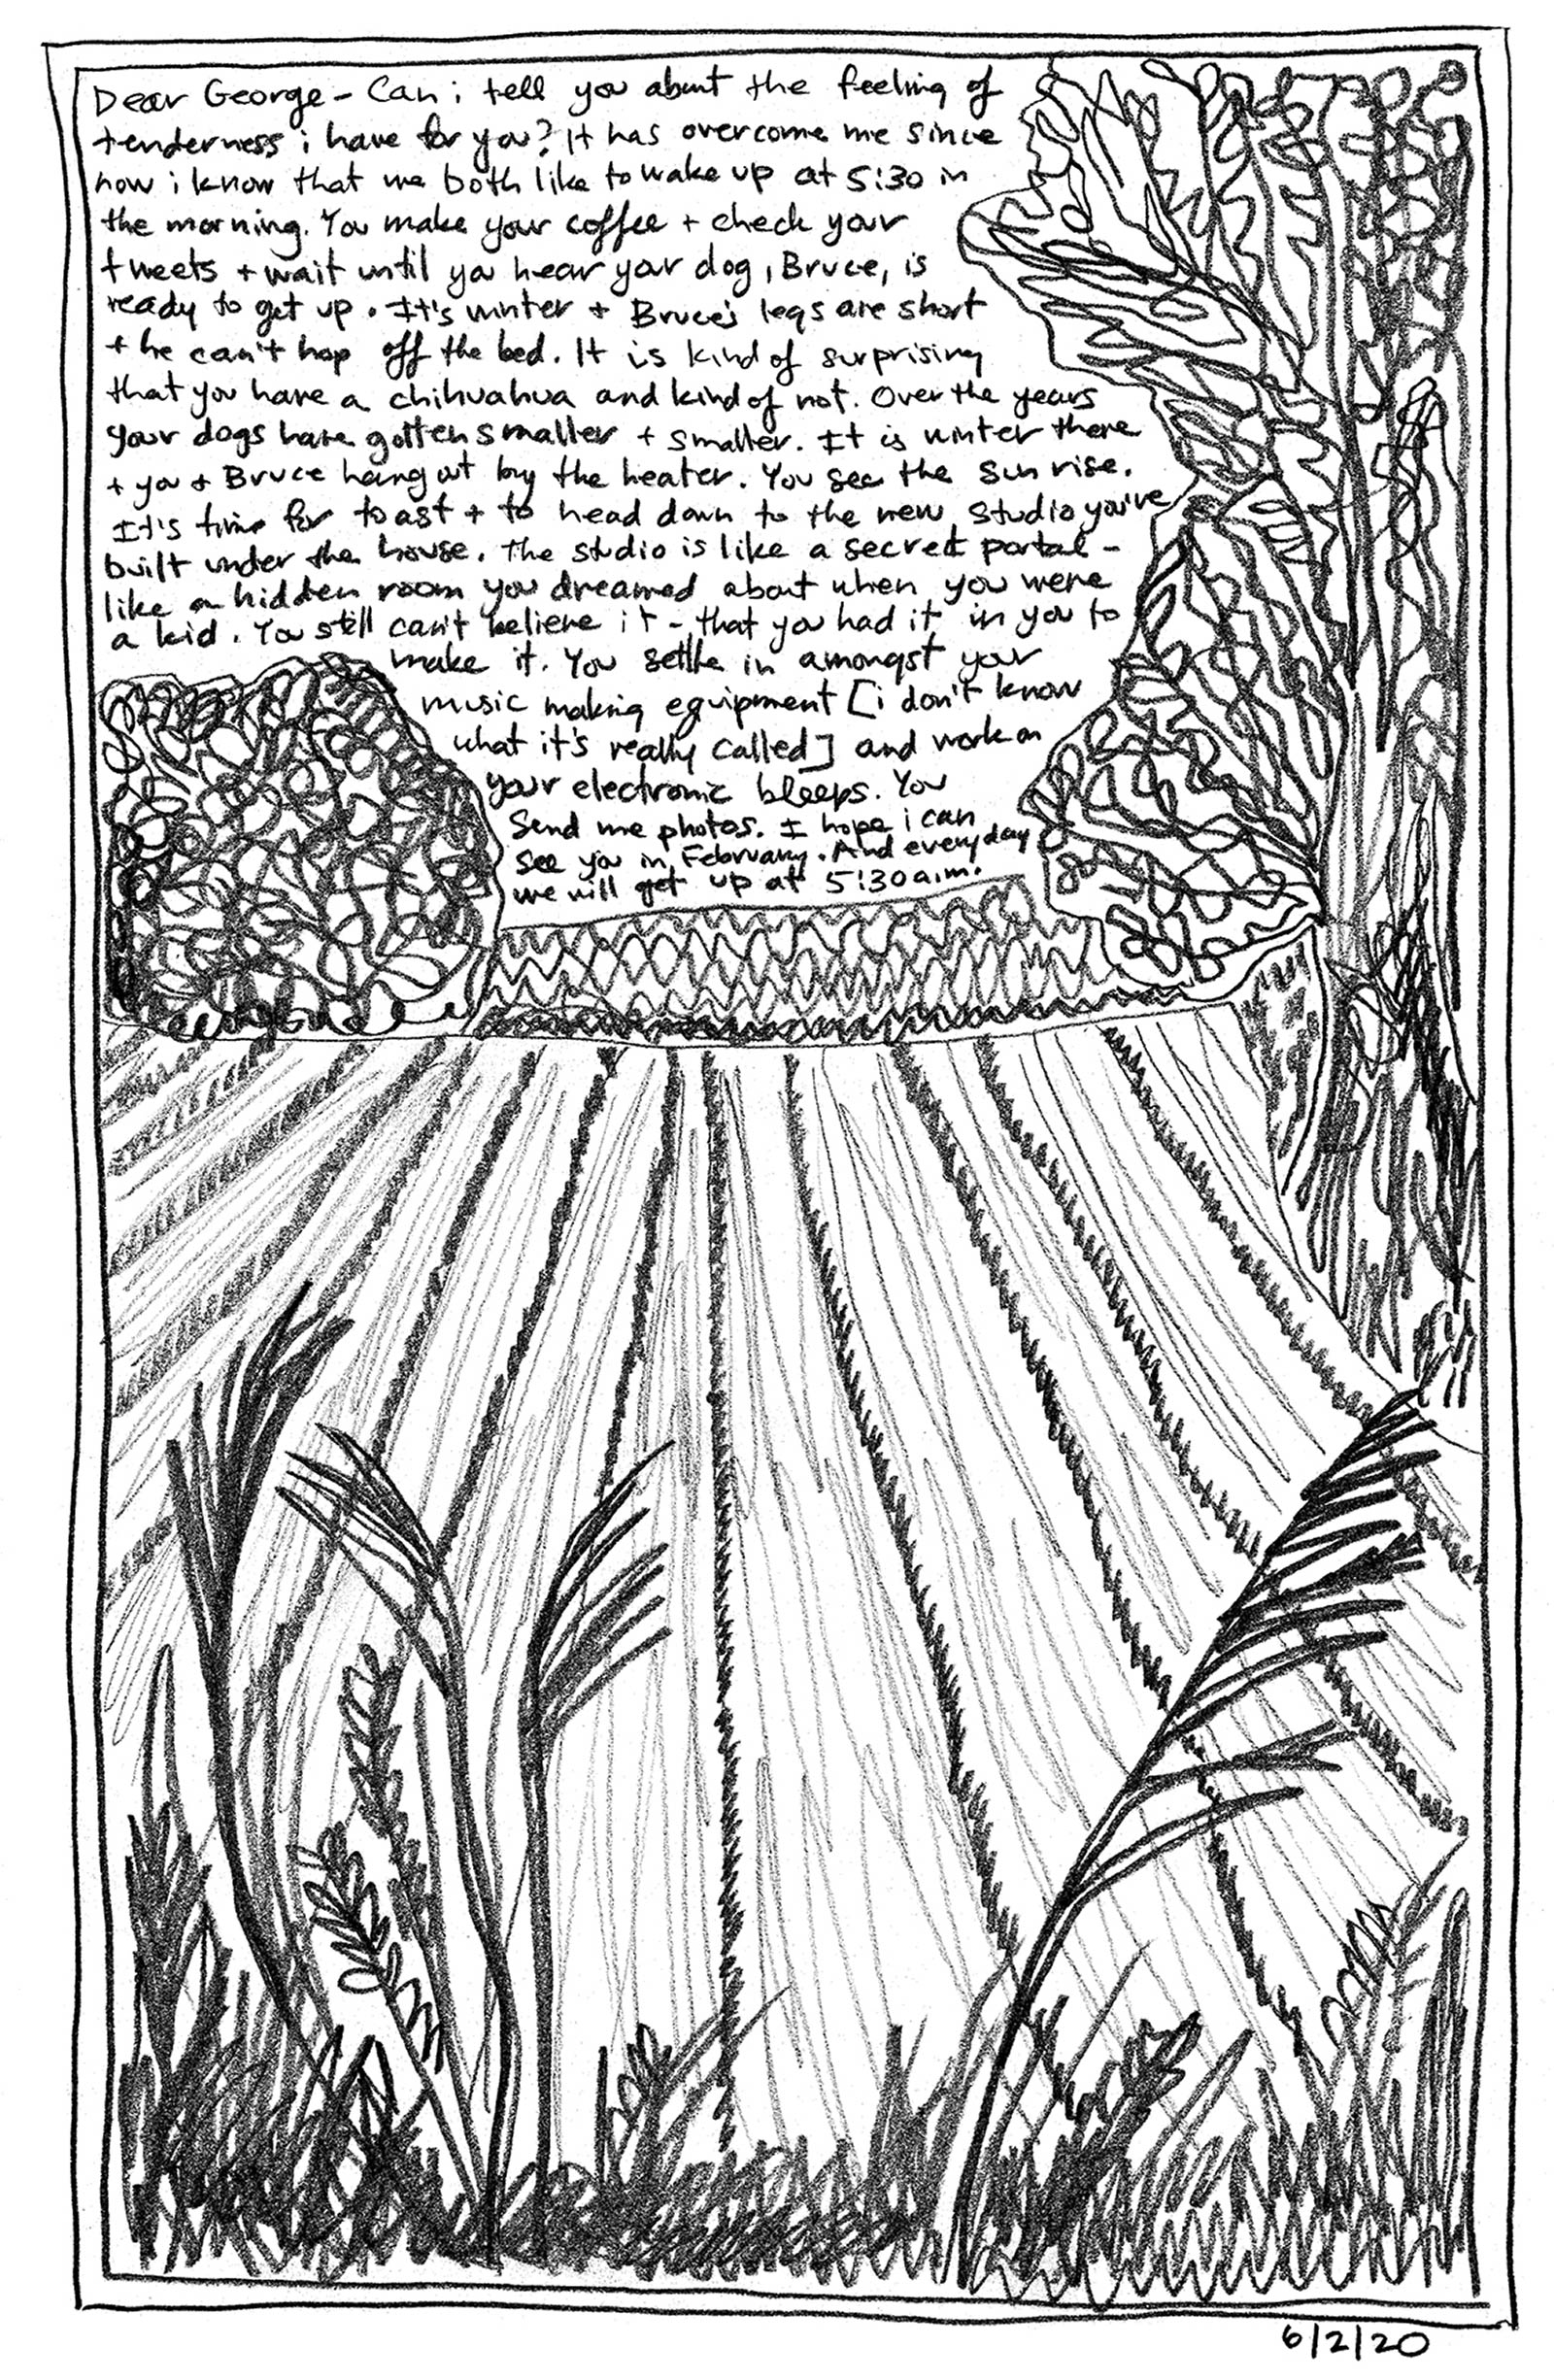 Dear George - Can i tell you about the feeling of
tenderness i have for you? It has overcome me since
now i know that we both like to wake up at 5:30 in
the morning. You make your coffee + check your
tweets + wait until you hear your dog, Bruce, is
ready to get up. It's winter + Bruce's legs are short
+ he can't hop off the bed. It is kind of surprising
that you have a chihuahua and kind of not. Over the years
your dogs have gotten smaller + smaller. It is winter there
+ you + Bruce hang out by the heater. You see the sun rise.
It's time for toast + to head down to the new studio you've
built under the house. The studio is like a secret portal -
like a hidden room you dreamed about when you were
a kid. You still can't believe it - that you had it in you to
make it. You settle in amongst your
music making equipment [i don't know
what it's really called] and work on
your electronic bleeps. You
send me photos. I hope i can
see you in February. And everyday
we will get up at 5:30 a.m.
6/2/20